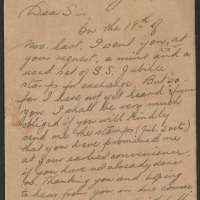 Dear Sir
On the 19th of
Nov. last, I sent you, at
your request, a mint and a
used set of S.S. Jubilee
stamps for exchange. But so
far I have not yet heard from
you. I shall be very much
obliged if you will kindly
send me the stamps
that you have promised me
at your earliest convenience,
if you have not already done
so. Thanking you and hoping
to hear from you in due course